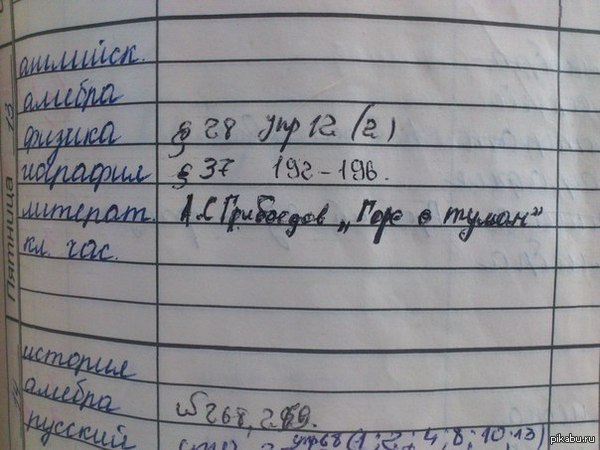 английск.
алгебра
физика § 28 упр 12 (2)
география § 37 192-196.
литерат. А.С Грибоедов „Горе о туман"
кл. час.
Пятница 13
история
алгебра № 268, 269.
русский упр 68 (1; 2; 4; 8; 10; 13)
pikabu.ru